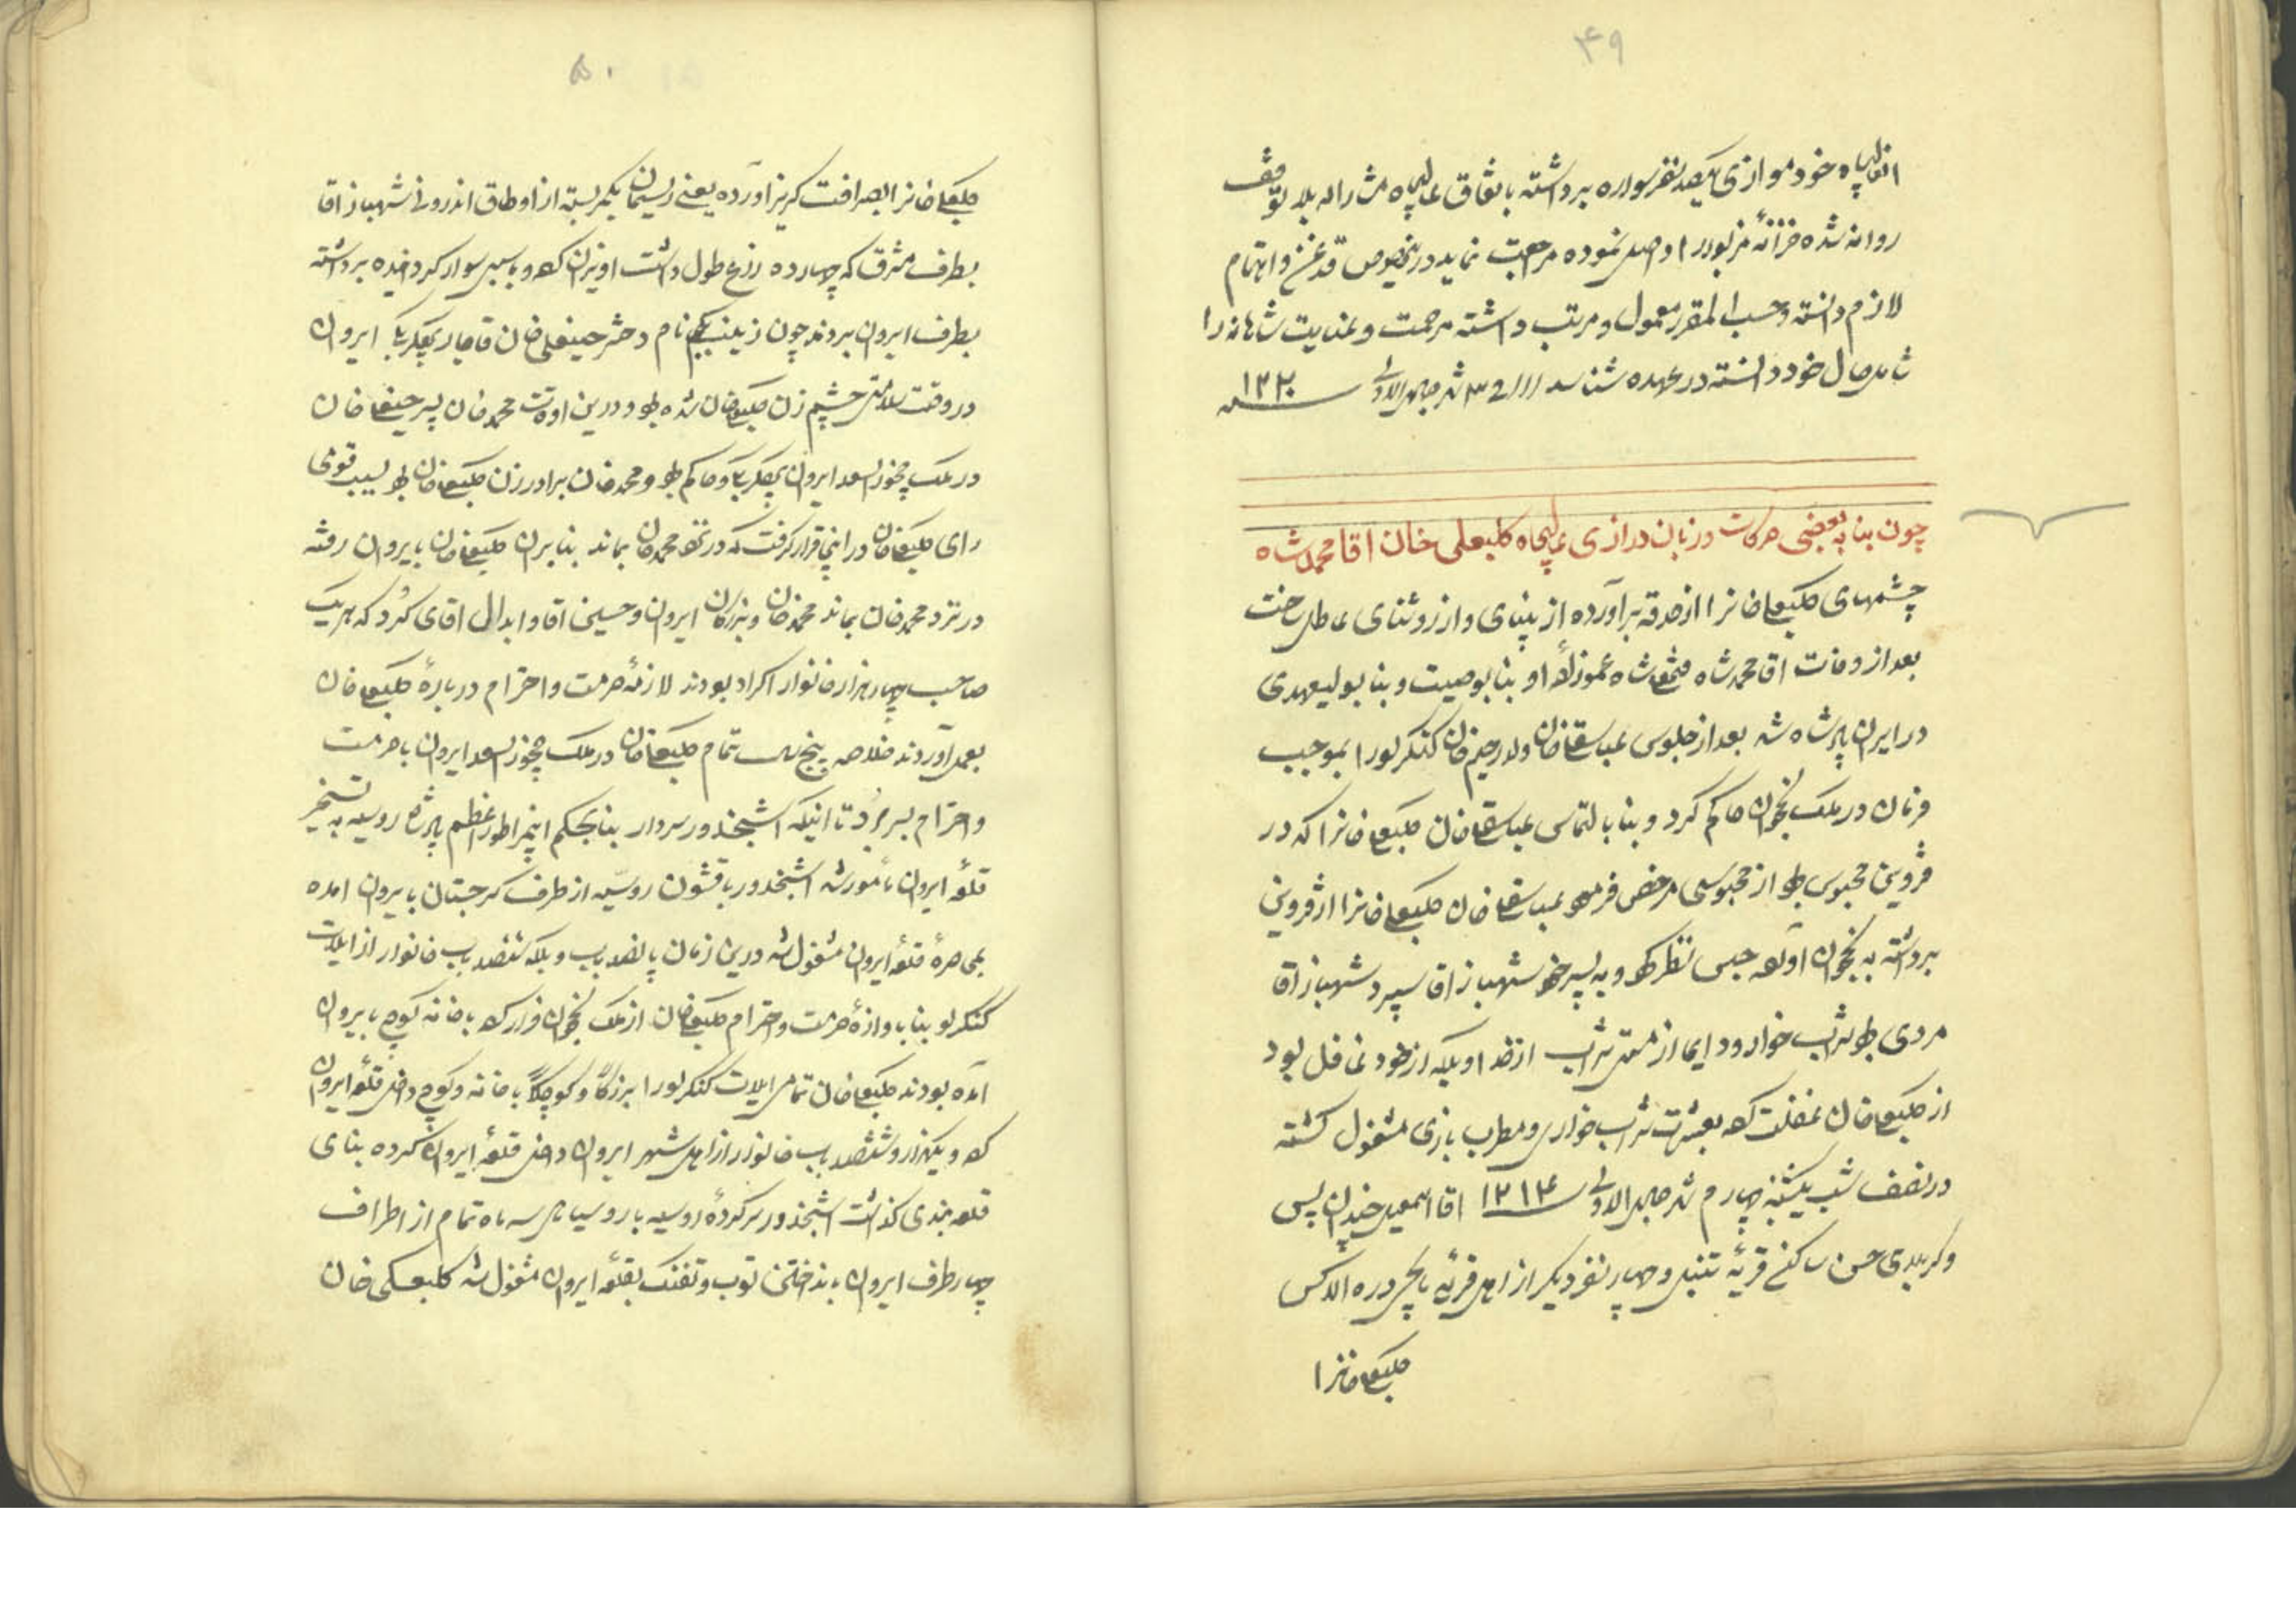 ۴۹
انعالیجاه خود موازی یکصد نفر سواره برداشته باتفاق عالیجاه مشارالیه بلا توقف
روانه شده خزانهٔ مزبور را وصل نموده مرجعت نماید درینخصوص قدغن و اهتمام
لازم دانسته و حسب المقرر معمول و مرتب داشته مرحمت و عنایت شاهانه را
شامل حال خود دانسته در عهده شناسد شهر جمادی الاولی
چون بنا به بعضی حرکات و زبان درازی عالیجاه کلبعلی خان اقا محمد شاه
چشمهای کلبعلیخانرا از حدقه برآورده از بینای و از روشنای عاطل ساخت
بعد از وفات اقا محمد شاه فتحعلیشاه عموزادهٔ او بنا بوصیت و بنا بولیعهدی
در ایران پادشاه شد بعد از جلوس عباسقلیخان ولد رحیم خان کنکرلو را بموجب
فرمان در ملک نخجوان حاکم کرد و بنا بالتماس عباسقلیخان کلبعلیخانرا که در
قزوین محبوس بود از محبوسی مرخص فرمود عباسقلیخان کلبعلیخانرا از قزوین
برداشته به نخجوان آورده حبس نظر کرد و به پسر خود شهباز اقا سپرد شهباز اقا
مردی بود شراب خوار و دایما از مستی شراب از خدا و بلکه از خود غافل بود
از کلبعلیخان غفلت کرده بعیش شراب خواری و مطرب بازی مشغول کشته
در نصف شب یکشنبه چهارم شهر جمادی الاولی ۱۲۱۴ اقا اسمعیل خندان پس
و کربلای حسن ساکن قریهٔ تننبل و چهار نفر دیکر از اهل قریهٔ دره الاکس
کلبعلیخانرا
۵۰
کلبعلیخانرا بصرافت کریز آورده یعنی ریسمان بکمر بسته از اوطاق اندرونی شهباز اقا
بطرف مشرق که چهارده ذرع طول داشت اویزان کرده و باسبی سوار کردانیده برداشته
بطرف ایروان بردند چون زینب بیکم نام دختر حسینعلی خان قاجار بیکلربیکی ایروان
در وقت سلامتی چشم زن کلبعلیخان شده بود و درین اوقات محمد خان پسر حسینعلیخان
در ملک چخورسعد ایروان بیکلربیکی و حاکم بود و محمد خان برادر زن کلبعلیخان بود لیسب قومی
رای کلبعلیخان در اینجا قرار کرفت که در نزد محمد خان بماند بنا بران کلبعلیخان بایروان رفته
در نزد محمد خان بماند محمد خان و بزرکان ایروان و حسین اقا و ابدال اقای کرد که هر یک
صاحب چهار هزار خانوار اکراد بودند لازمهٔ حرمت و احترام دربارهٔ کلبعلیخان
بعمل آوردند خلاصه پنج سال تمام کلبعلیخان در ملک چخورسعد ایروان با حرمت
و احترام بسر برد تا اینکه اشپخدور سردار بنا بحکم ایمپراطور اعظم پادشاه روسیه به تسخیر
قلعهٔ ایروان مأمور شد اشپخدور با قشون روسیه از طرف کرجستان بایروان امده
بمحاصرهٔ قلعهٔ ایروان مشغول شد درین زمان پانصد باب و بلکه ششصد باب خانوار از ایلات
کنکرلو بنا باوازهٔ حرمت و احترام کلبعلیخان از ملک نخجوان فرار کرده با خانه کوچ بایروان
آمده بودند کلبعلیخان تمامی ایلات کنکرلو را بزرکاً و کوچکاً با خانه و کوچ داخل قلعهٔ ایروان
کرده و یکهزار و ششصد باب خانوار از اهل شهر ایروان داخل قلعهٔ ایروان کرده بنای
قلعه بندی کذاشت اشپخدور سرکردهٔ روسیه با روسیان سه ماه تمام از اطراف
چهار طرف ایروان بانداختن توب و تفنک بقلعهٔ ایروان مشغول شد کلبعلی خان